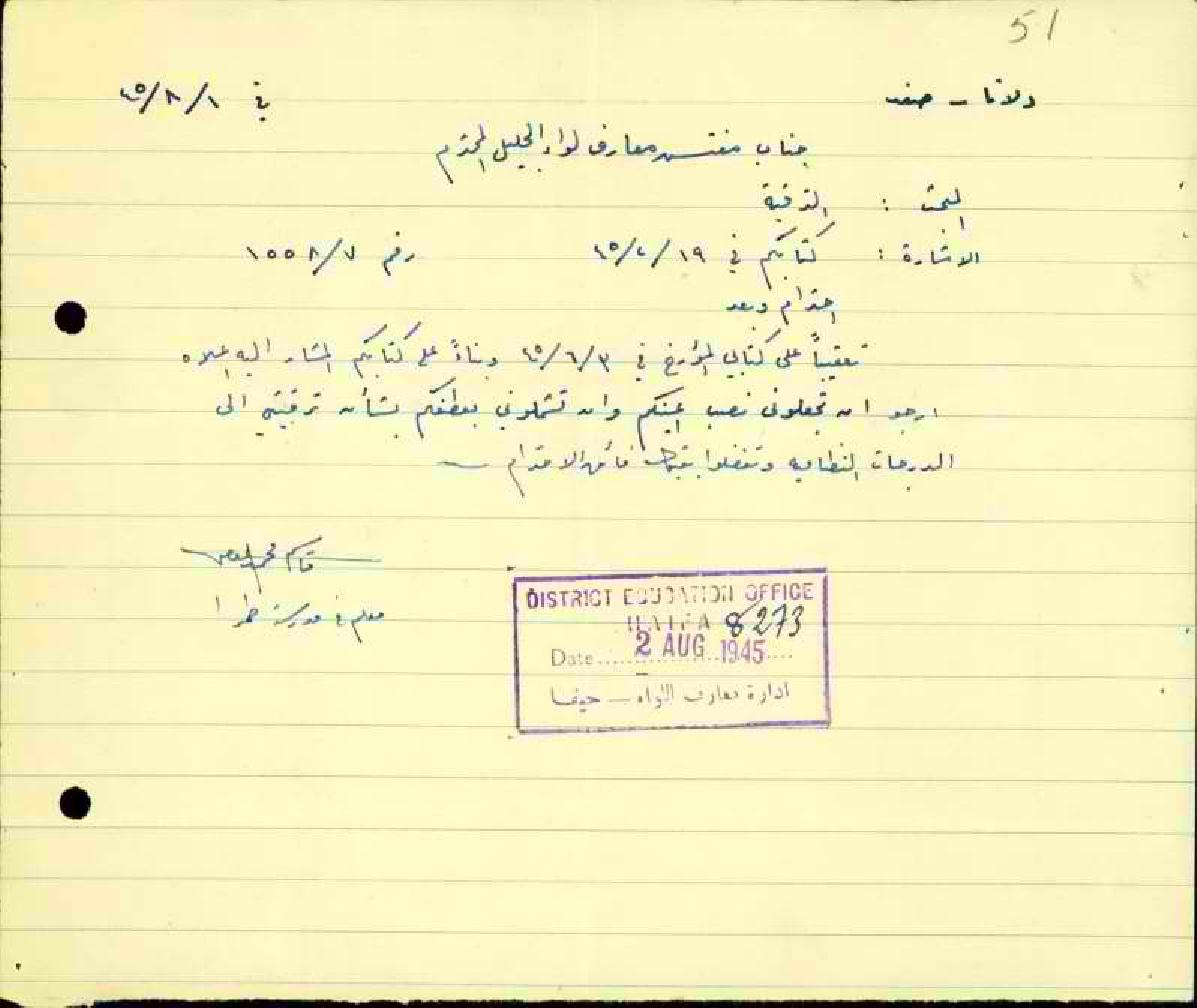 51
دلاتا ــ صفد في ٤٥/٨/١
جناب مفتش معارف لواء الجليل المحترم
المبحث : الترقية
الاشارة : كتابكم في ٤٥/٢/١٩ رقم ١٥٥٨/٧
احترام وبعد
تعقيباً على كتابي المؤرخ في ٤٥/٦/٣ وبناءً على كتابكم المشار اليه اعلاه
ارجو ان تجعلوني نصب اعينكم وان تشملوني بعطفكم بشأن ترقيتي الى
الدرجات النظاميه وتفضلوا بقبول فائق الاحترام
قاسم محمد
معلم في مدرسة
DISTRICT EDUCATION OFFICE
HAIFA 8273
Date 2 AUG 1945
ادارة معارف اللواء ــ حيفا